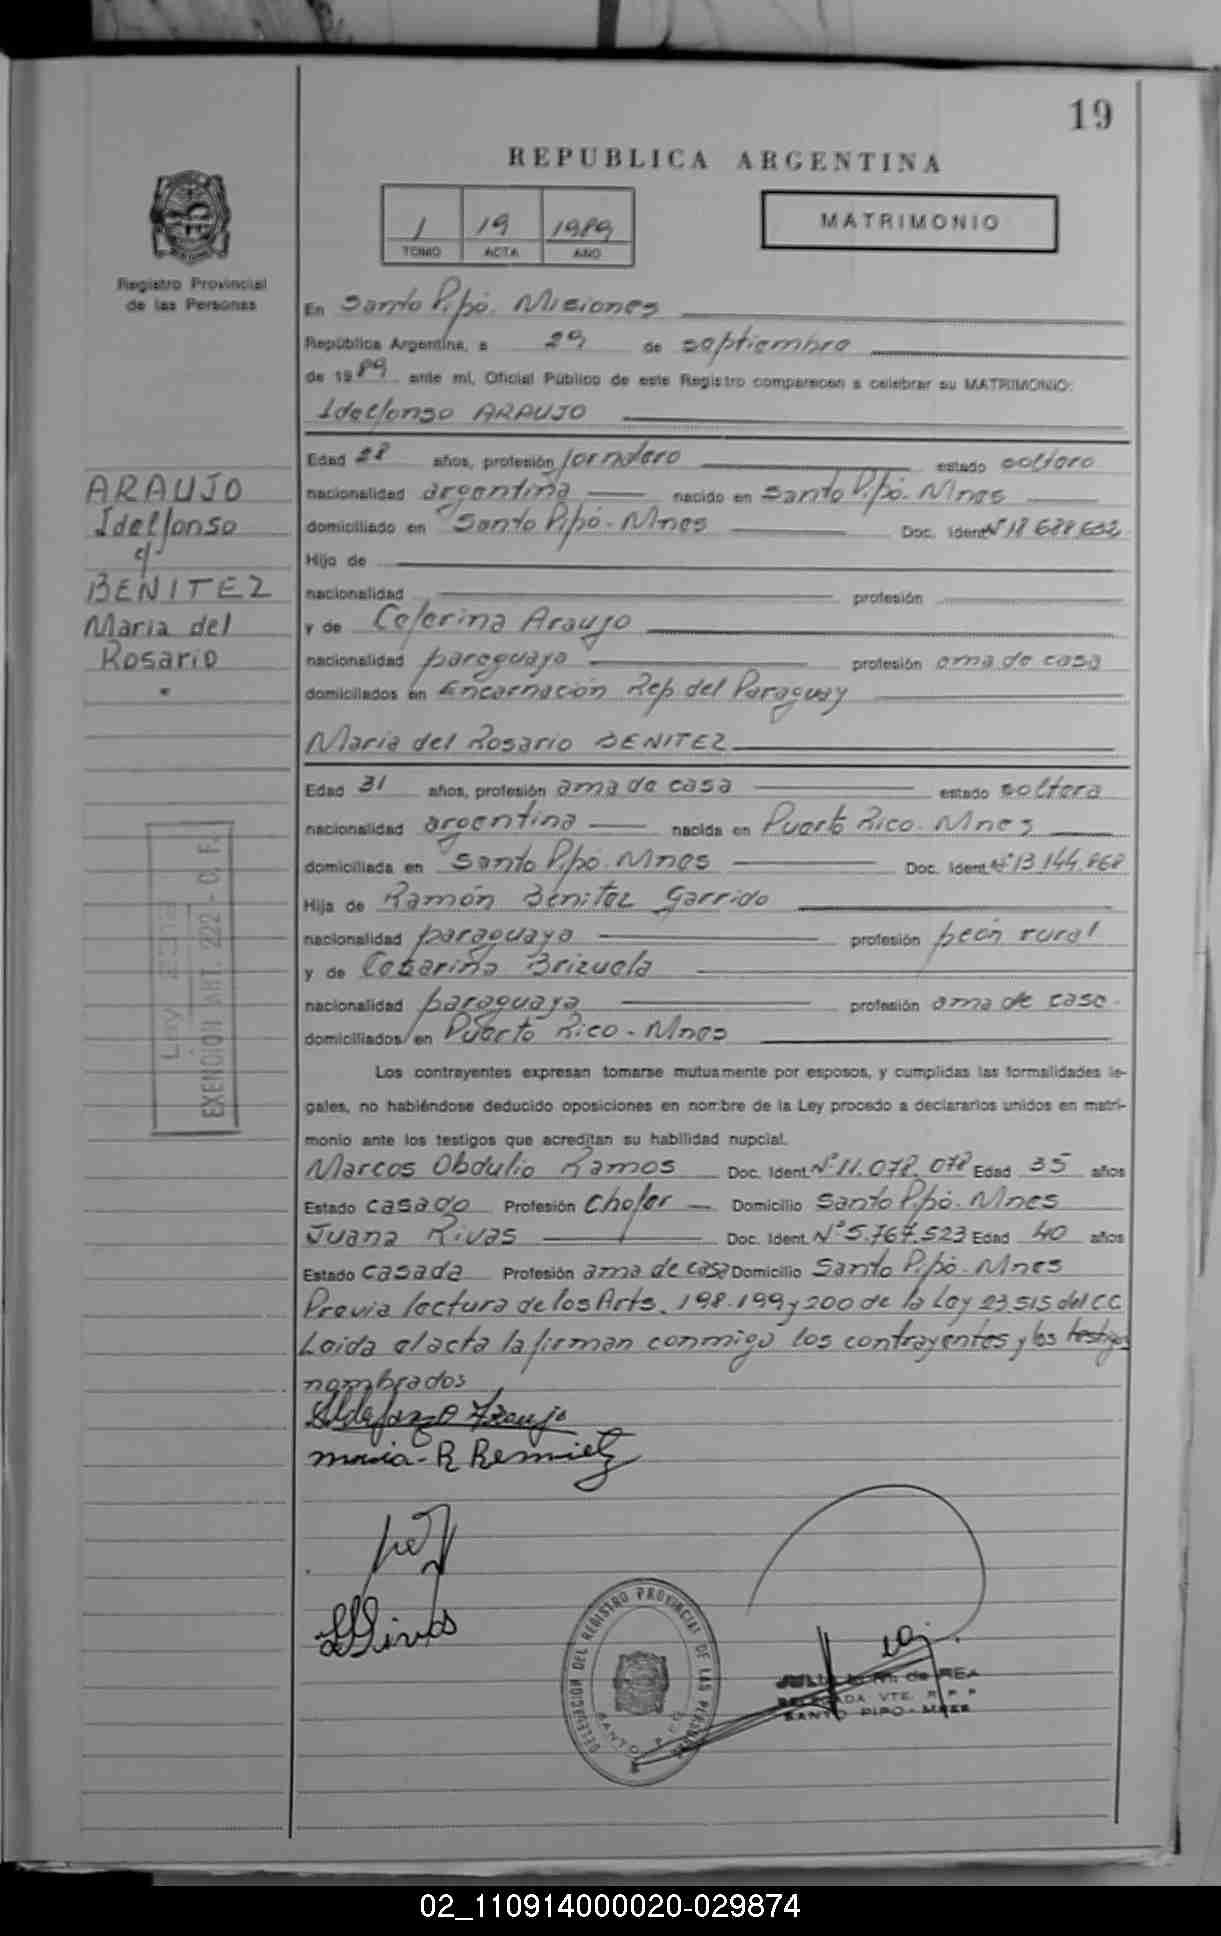 19
REPUBLICA ARGENTINA
1 19 1989
TOMO ACTA AÑO
MATRIMONIO
Registro Provincial
de las Personas
En Santo Pipó. Misiones
República Argentina, a 29 de septiembre
de 1989 ante mí, Oficial Público de este Registro comparecen a celebrar su MATRIMONIO:
Idelfonso ARAUJO
Edad 28 años, profesión jornalero estado soltero
nacionalidad argentina nacido en Santo Pipó. Mnes
domiciliado en Santo Pipó - Mnes Doc. Ident. Nº 18.688.632
Hijo de
nacionalidad profesión
y de Ceferina Araujo
nacionalidad paraguaya profesión ama de casa
domiciliados en Encarnación Rep. del Paraguay
ARAUJO
Idelfonso
c/
BENITEZ
Maria del
Rosario
Maria del Rosario BENITEZ
Edad 31 años, profesión ama de casa estado soltera
nacionalidad argentina nacida en Puerto Rico. Mnes
domiciliada en Santo Pipó. Mnes Doc. Ident. Nº 13.144.868
Hija de Ramón Benitez Garrido
nacionalidad paraguaya profesión peón rural
y de Cesarina Brizuela
nacionalidad paraguaya profesión ama de casa.
domiciliados en Puerto Rico - Mnes
Ley
EXENCION ART. 222 - C. F.
Los contrayentes expresan tomarse mutuamente por esposos, y cumplidas las formalidades le-
gales, no habiéndose deducido oposiciones en nombre de la Ley procedo a declararlos unidos en matri-
monio ante los testigos que acreditan su habilidad nupcial.
Marcos Obdulio Ramos Doc. Ident. Nº 11.078.078 Edad 35 años
Estado casado Profesión chofer Domicilio Santo Pipó. Mnes
Juana Rivas Doc. Ident. Nº 5.767.523 Edad 40 años
Estado casada Profesión ama de casa Domicilio Santo Pipó - Mnes
Previa lectura de los Arts. 198.199 y 200 de la Ley 23.515 del C.C
Leida el acta la firman conmigo los contrayentes y los testigos
nombrados
Ildefonzo Araujo
maria - R Bennietz
Rivas
DELEGACION DEL REGISTRO PROVINCIAL DE LAS PERSONAS
SANTO PIPO
de REA
DELEGADA VTE. R P P
SANTO PIPO - MNES
02_110914000020-029874